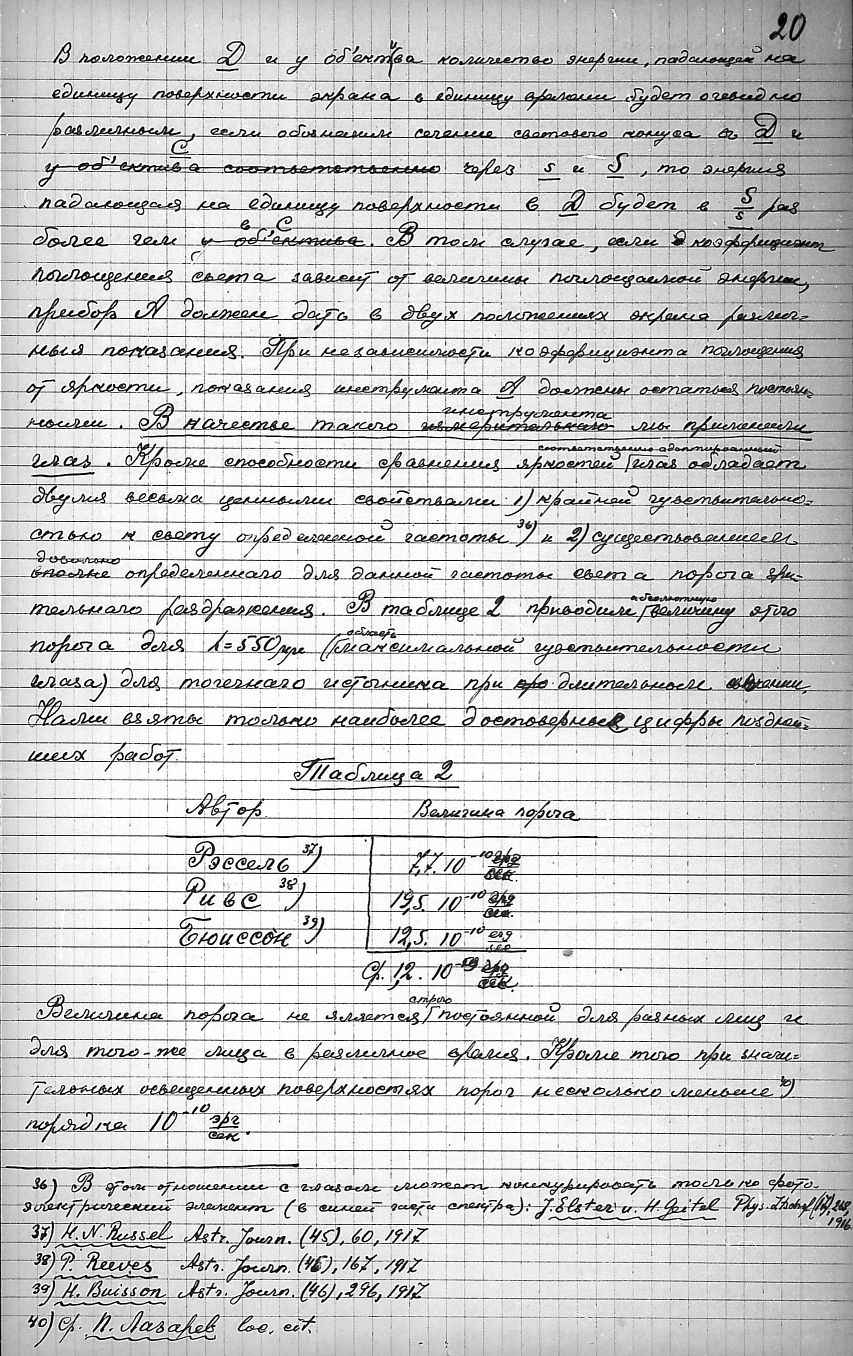 20
В положении D и у об'ектива количество энергии, падающей на
единицу поверхности экрана в единицу времени будет очевидно
различным, если обозначим сечение светового конуса въ D и
C
у об'ектива соответственно через s и S, то энергия
падающая на единицу поверхности в D будет в S/s раз
в C
более чем у об'ектива. В том случае, если коэффициент
поглощения света зависит от величины поглощаемой энергии,
прибор A должен дать в двух положениях экрана различ-
ныя показания. При независимости коэффициэнта поглощения
от яркости, показания инструмента A должны остаться постоян-
ными. В качестве такого измерительного инструмента мы применили
соответственно адоптированный
глаз. Кроме способности сравнения яркостей глаз обладает
двумя весьма ценными свойствами: 1) крайней чувствительно-
стью к свету определенной частоты 36) и 2) существованием
довольно
вполне определеннаго для данной частоты света порога зри-
тельнаго раздражения. В таблице 2 приводим абсолютную величину этого
порога для λ=550 μμ (область максимальной чувствительности
глаза) для точечнаго источника при длительном
Нами взяты только наиболее достоверные цифры поздней-
ших работ.
Таблица 2
Автор Величина порога
Рэссель 37) 7,7. 10⁻¹⁰ эрг/сек.
Ривс 38) 19,5. 10⁻¹⁰ эрг/сек.
Бюиссон 39) 12,5. 10⁻¹⁰ erg/sec
Ср. 1,2. 10⁻⁹ эрг/сек.
Величина порога не является строго постоянной для разных лиц и
для того-же лица в различное время. Кроме того при значи-
тельных освещенных поверхностях порог несколько меньше 40)
порядка 10⁻¹⁰ эрг/сек.
36) В этом отношении с глазом может конкурировать только фото-
электрический элемент (в синей части спектра): J. Elster u. H. Geitel Phys. Ztschrf (17), 268,
1916.
37) H. N. Russel Astr. Journ. (45), 60, 1917
38) P. Reeves Astr. Journ. (46), 167, 1917
39) H. Buisson Astr. Journ. (46), 296, 1917
40) Ср. П. Лазарев loc. cit.